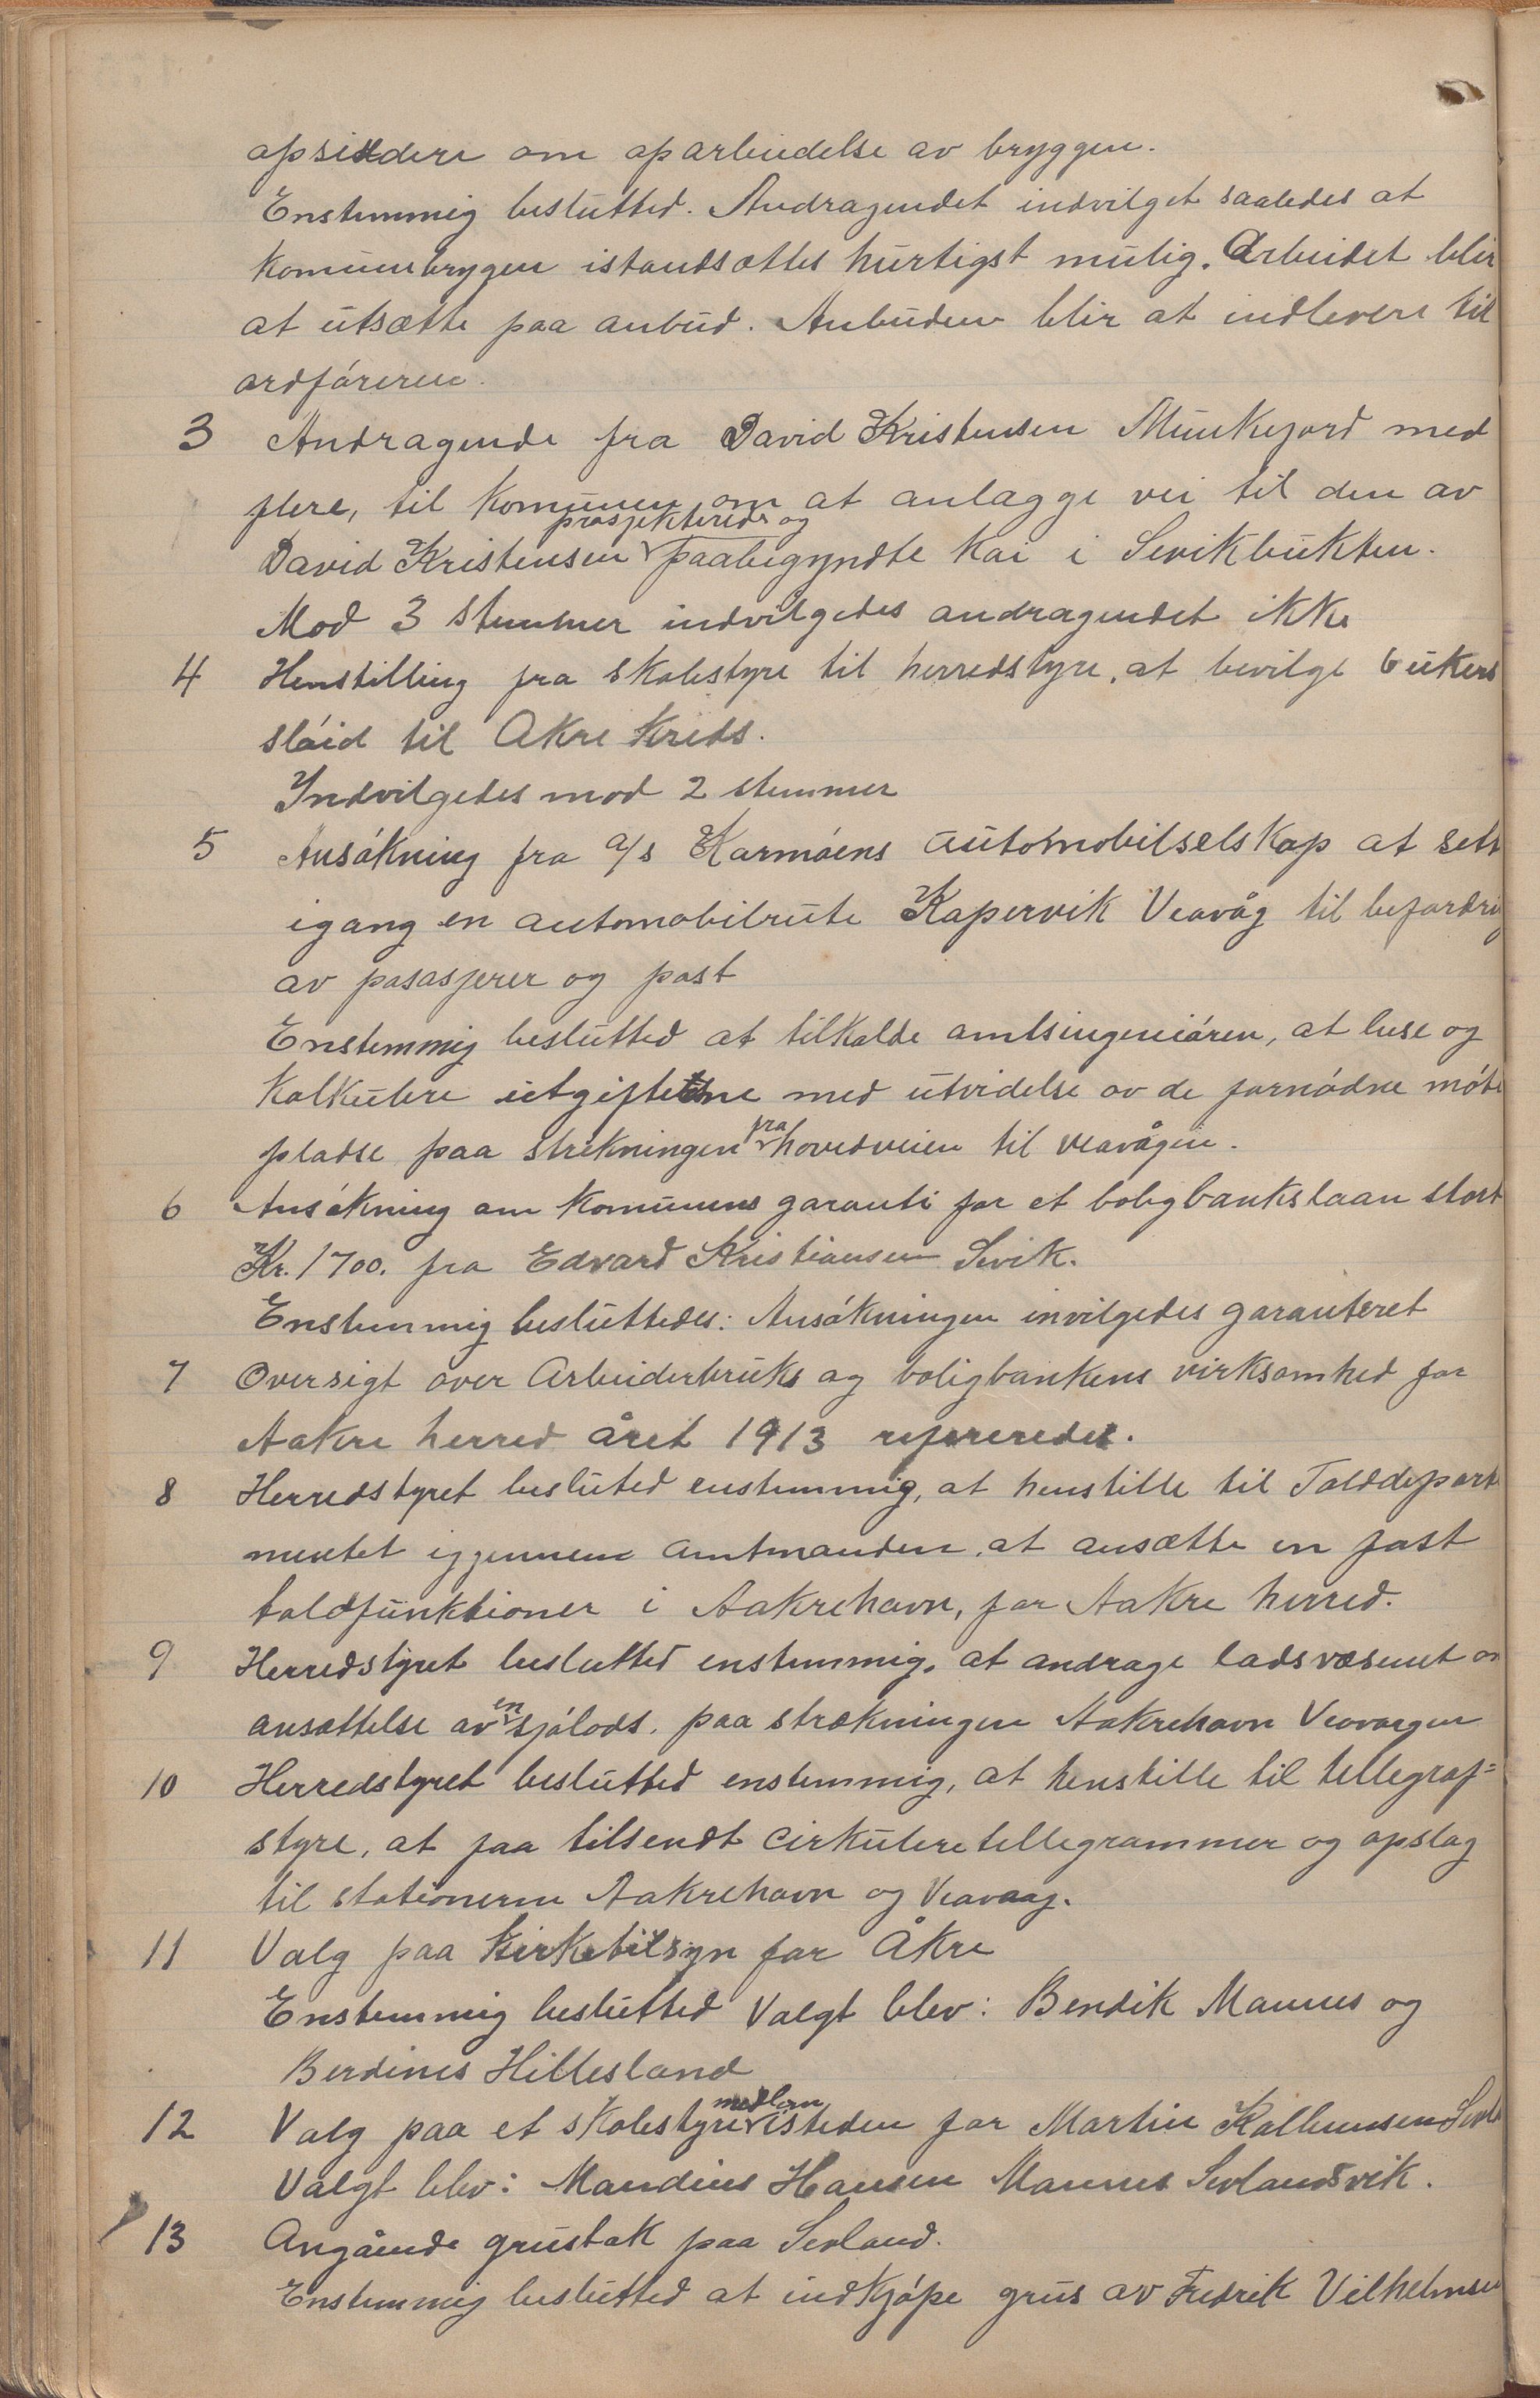 opsiddere om oparbeidelse av bryggen.
Enstemmig beslutted. Andragendet indvilget saaledes at
Komunebrygen istandsættes hurtigst mulig. Arbeidet blir
at utsætte paa anbud. Anbudene blir at indlevere til
ordføreren.
3 Andragende fra David Kristensen Munkejord med
flere, til Komunen om at anlægge vei til den av
David Kristensen prosjekterede og paabegyndte Kai i Sevikbukten.
Mod 3 stemmer indvilgedes andragendet ikke
4 Henstilling fra skolestyre til herredstyre, at bevilge 6 ukers
sløid til Akre Kreds.
Indvilgedes mod 2 stemmer
5 Ansøkning fra a/s Karmøens Automobilselskap at sett
igang en automobilrute Kopervik Veavåg til befordri
av pasasjerer og post
Enstemmig besluttet at tilkalde amtsingeniøren, at bese og
Kalkulere utgifterne med utvidelse av de fornødne møte
pladse paa strekningen fra hovedveien til veavågen.
6 Ansøkning om Komunens garanti for et boligbankslaan stort
Kr. 1700. fra Edvard Kristiansen Sevik.
Enstemmig besluttedes: Ansøkningen invilgedes garanteret
7 Oversigt over Arbeiderbruks og boligbankens virksomhed for
Aakre herred året 1913 refereredes.
8 Herredstyret besluted enstemmig, at henstille til Tolddeparte
mentet igjennem amtmanden, at ansætte en fast
toldfunktionær i Aakrehavn, for Aakre herred.
9 Herredstyret beslutted enstemmig, at andrage lodsvæsenet om
ansættelse av en sjølods. paa strækningen Aakrehavn Veavaagen
10 Herredstyret beslutted enstemmig, at henstille til tellegraf=
styre, at faa tilsendt cirkuleretellegrammer og opslag
til stationerne Aakrehavn og Veavaag.
11 Valg paa Kirketilsyn for Åkre
Enstemmig beslutted Valgt blev: Bendik Mannes og
Berdines Hillesland
12 Valg paa et skolestyremedlem isteden for Martin Kallumsen
Valgt blev: Mandius Hansen Mannes Sevlandsvik.
13 Angående grustak paa Sevland.
Enstemmig besluttet at indkjøpe grus av Fredrik Vilhelmsen